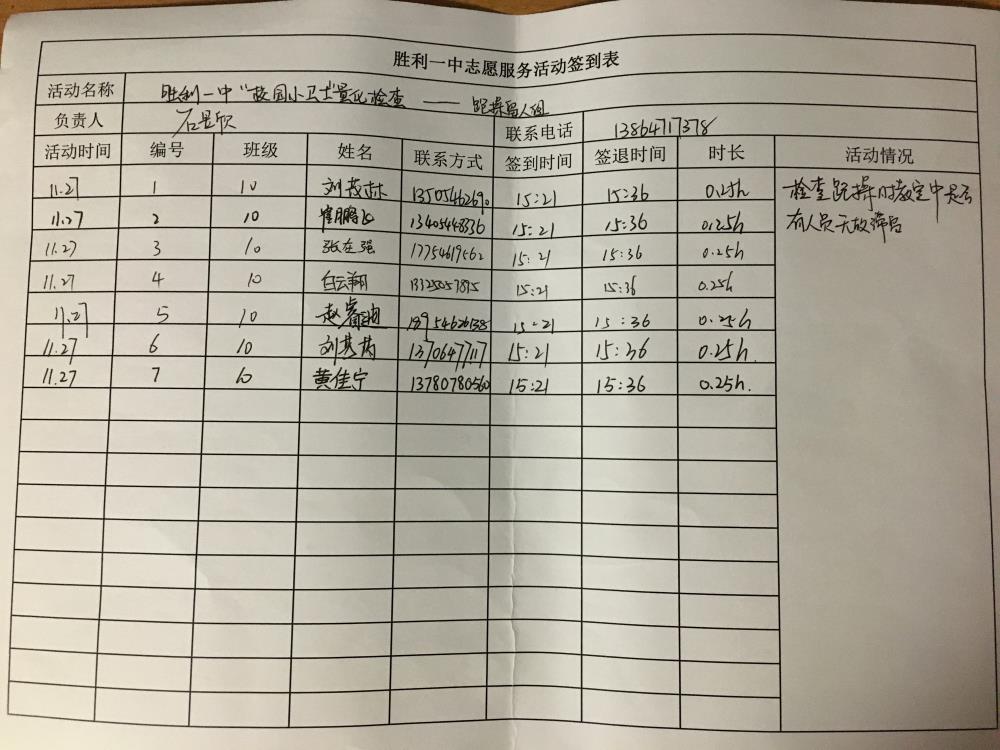 胜利一中志愿服务活动签到表
活动名称 胜利一中"校园小卫士"量化检查 —— 跑操留人组
负责人 石昱欣 联系电话 13864717378
活动时间 编号 班级 姓名 联系方式 签到时间 签退时间 时长 活动情况
11.27 1 10 刘茂林 13505462690 15:21 15:36 0.25h 检查跑操时教室中是否
11.27 2 10 崔鹏飞 13405448336 15:21 15:36 0.25h 有人员无故滞留
11.27 3 10 张在强 17754619562 15:21 15:36 0.25h
11.27 4 10 白云翔 15:21 15:36 0.25h
11.27 5 10 赵 15:21 15:36 0.25h
11.27 6 10 刘 13706477117 15:21 15:36 0.25h.
11.27 7 10 黄佳宁 13780780560 15:21 15:36 0.25h.